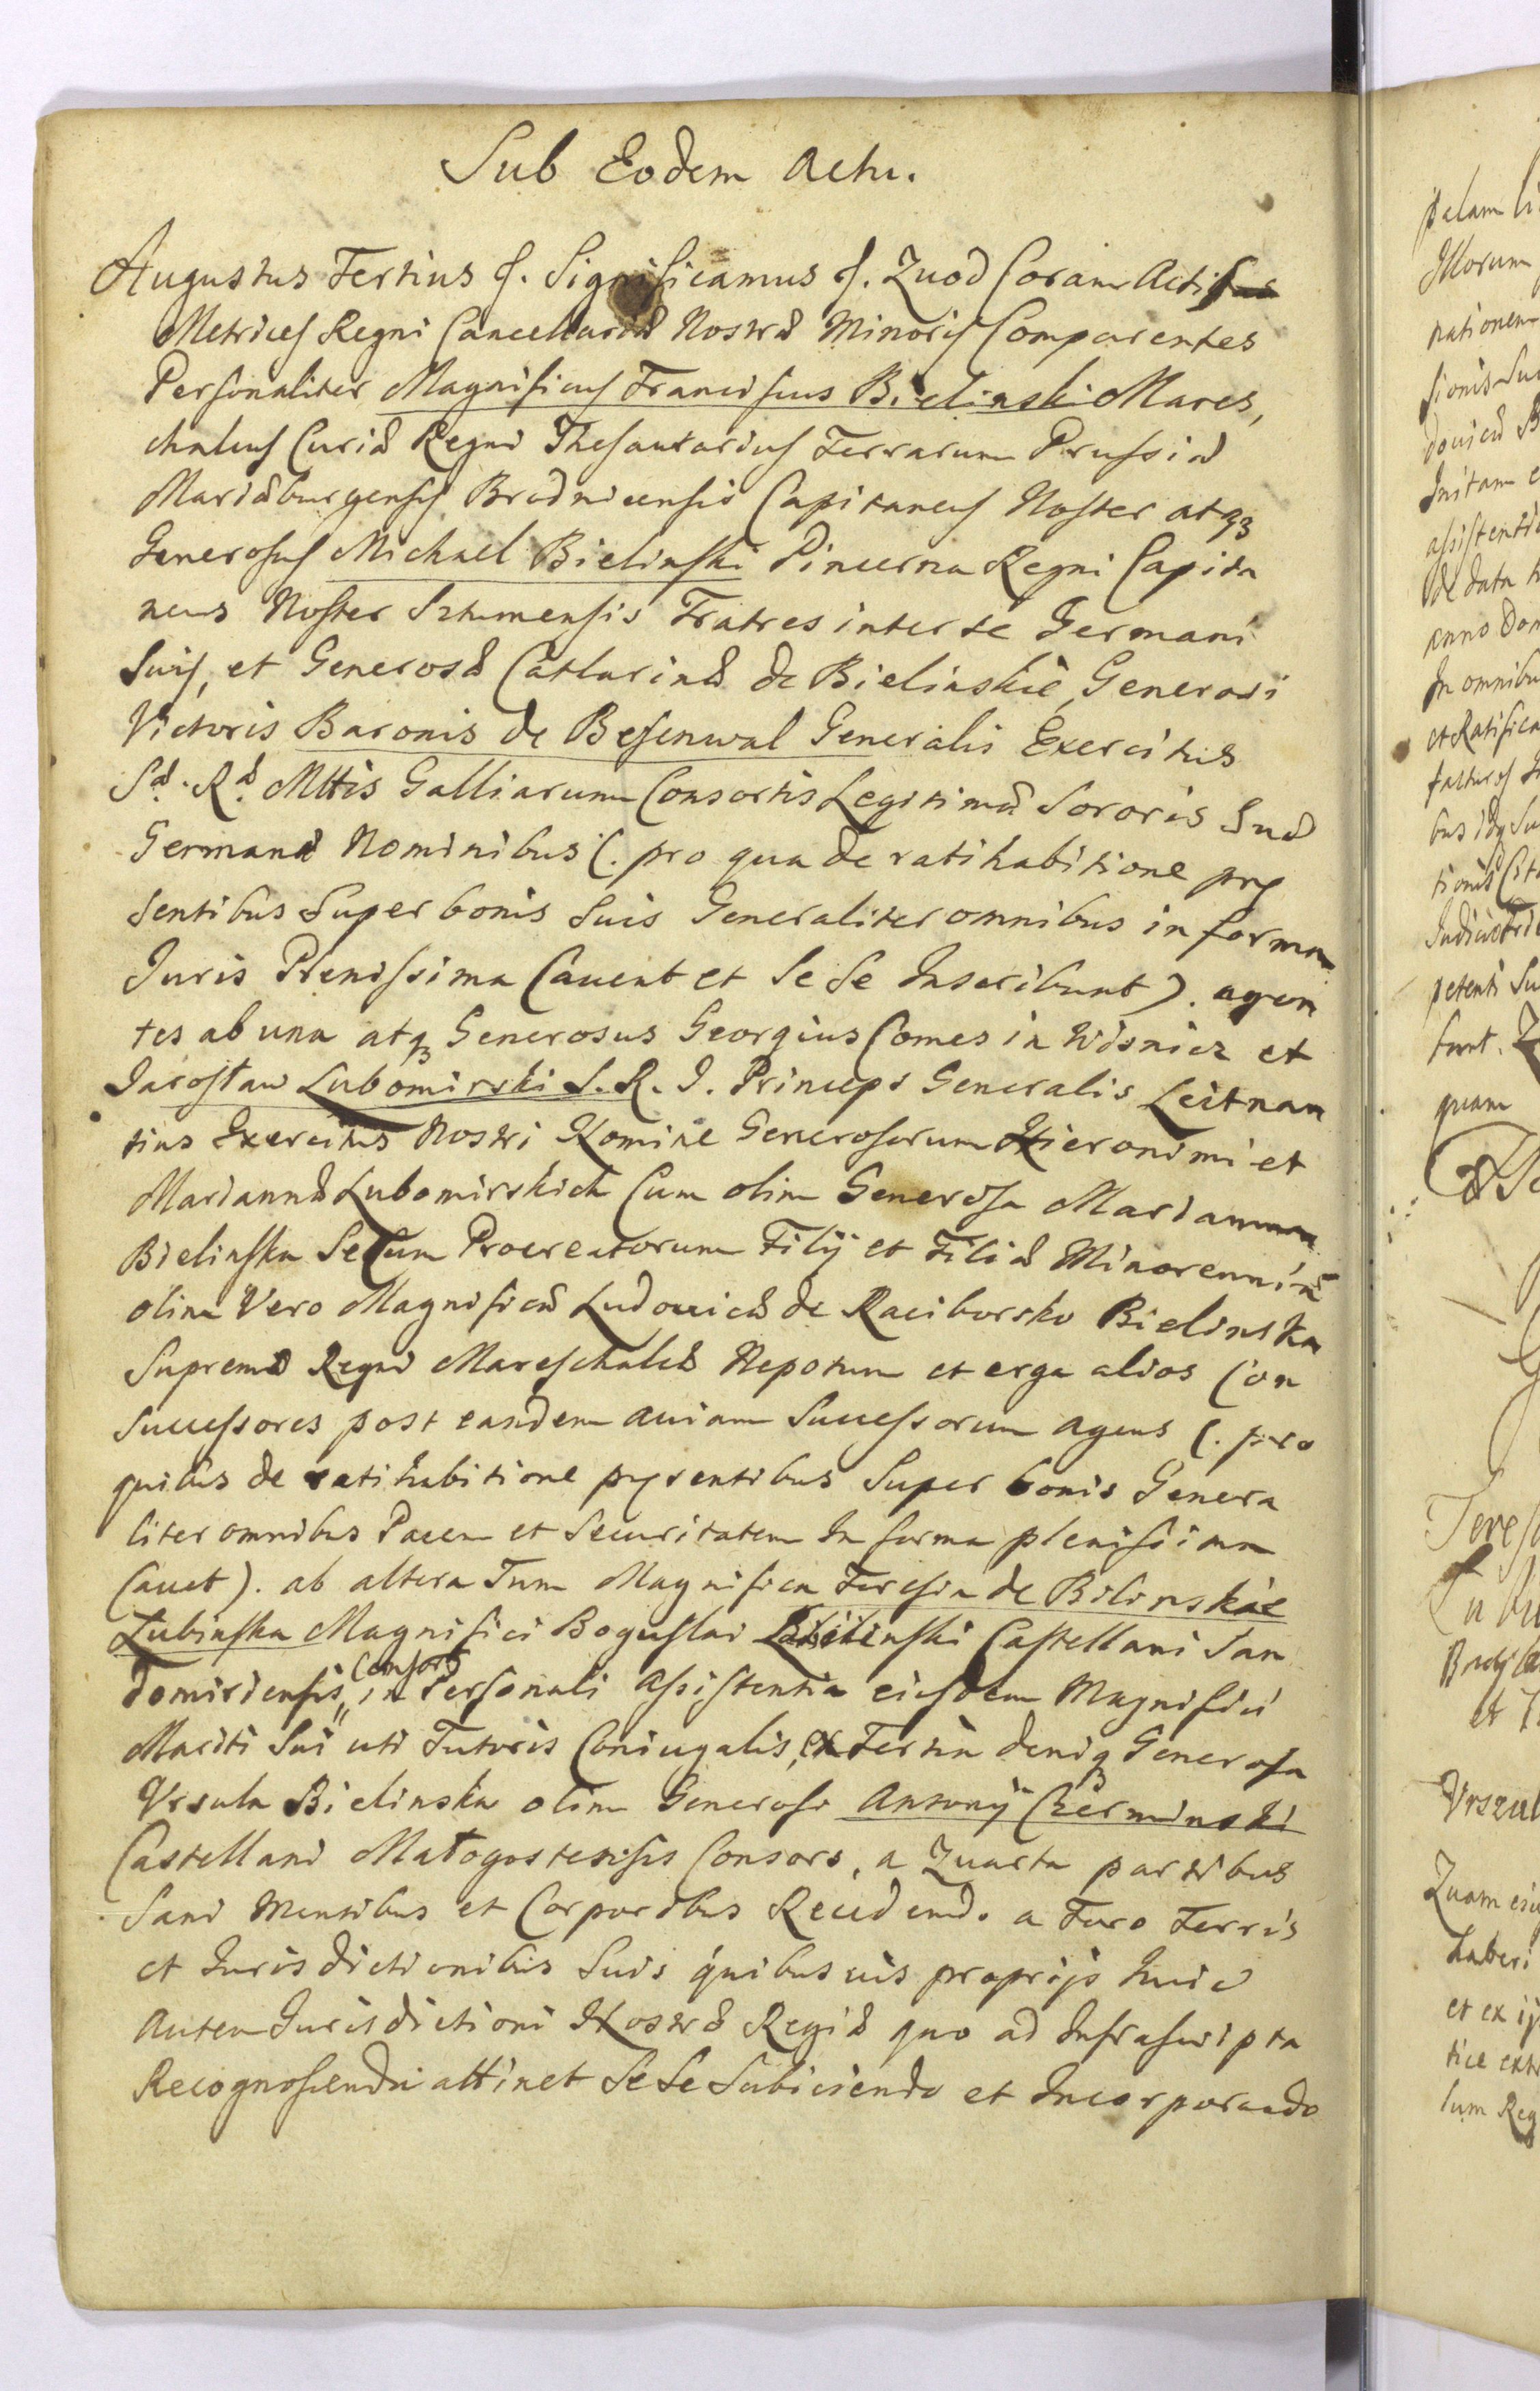 Sub Eodem Actu.
Augustus Tertius &. Significamus &. Quod Coram Actis
Metrices Regni Cancellariæ Nostræ Minoris Comparentes
Personaliter Magnificus Franciscus Bielinski Mares,
chalcus Curiæ Regni Thesaurarius Terrarum Prussiæ
Mariæburgensis Brodnicensis Capitaneus Noster atq3
Generosus Michael Bielinski Pincerna Regni Capita
neus Noster Sztumensis Fratres inter se Germani
Suis, et Generosæ Catharinæ de Bielinskie, Generosi
Victoris Baronis de Besenwal Generalis Exercitus
Sæ. Ræ. Mttis Galliarum Consortis Legitimæ Sororis Suæ
Germanæ Nominibus (. pro qua de ratihabitione præ
sentibus Super bonis Suis Generaliter omnibus in forma
Juris Plenissima Cavent et Se Se Inscribunt). agen
tes ab una atq3 Generosus Georgius Comes in Wisnicz et
Jarosław Lubomirski S. R. I. Princeps Generalis Leitnan
tius Exercitus Nostri Nomine Generosorum Hieronimi et
Mariannæ Lubomirskich Cum olim Generosa Marianna
Bielinska Secum Procreatorum Filij et Filiæ Minorennium
olim Vero Magnificæ Ludovicæ de Raciborsko Bielinska
Supremæ Regni Mareschalcæ Nepotum et erga alios Con
Successores post eandem aviam Successorum agens (. pro
quibus de ratihabitione præsentibus Super bonis Genera
liter omnibus Pacem et Securitatem In forma plenissima
Cavet). ab altera Tum Magnifica Teresia de Bilinskie
Łubinska Magnifici Boguslai Łubinski Castellani San
domiriensis, Consors in Personali assistentia eiusdem Magnifici
Mariti Sui uti Tutoris Coniugalis, ex Tertia deniq3 Generosa
Ursula Bielinska olim Generosi Antonij Czerminski
Castellani Małogostensis Consors, a Quarta partibus
Sani Mentibus et Corporibus Recedendo a Foro Terris
et Jurisdictionibus Suis quibusvis proprijs huic
autem Jurisdictioni Nostræ Regiæ quo ad Infrascripta
Recognoscenda attinet Se Se Subiciendo et Incorporando
palam
Illorum
nationem
sionis
Initam
assistenti
de data
anno Dom
In omnibu
et Ratifica
petenti Su
sunt.
quam
Teres
et
Vrszul
Quam
haberi
et ex
tice
tum Reg